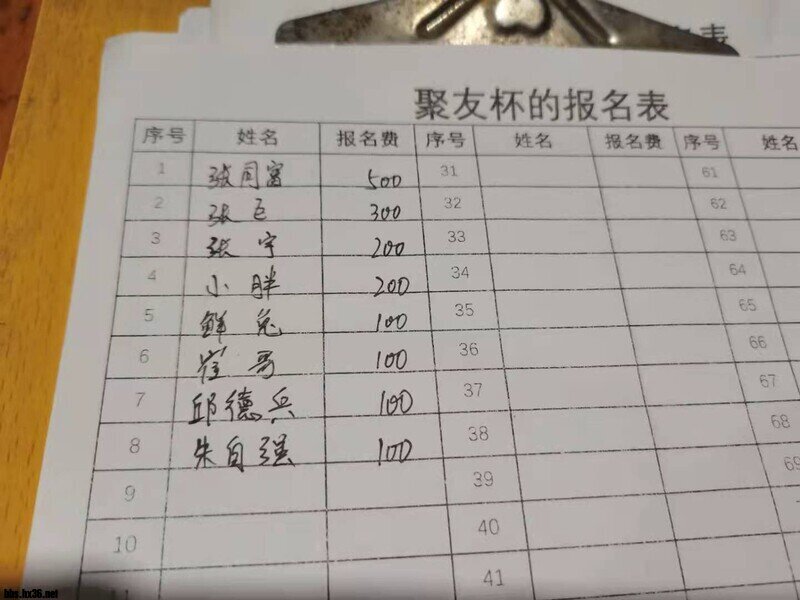 表
聚友杯的报名表
序号 姓名 报名费 序号 姓名 报名费 序号 姓名
1 张同富 500 31 61
2 张巨 300 32 62
3 张宇 200 33 63
4 小胖 200 34 64
5 鲜兔 100 35 65
6 崔哥 100 36 66
7 邱德兵 100 37 67
8 朱自强 100 38 68
9 39 69
10 40
41
bbs.hx36.net